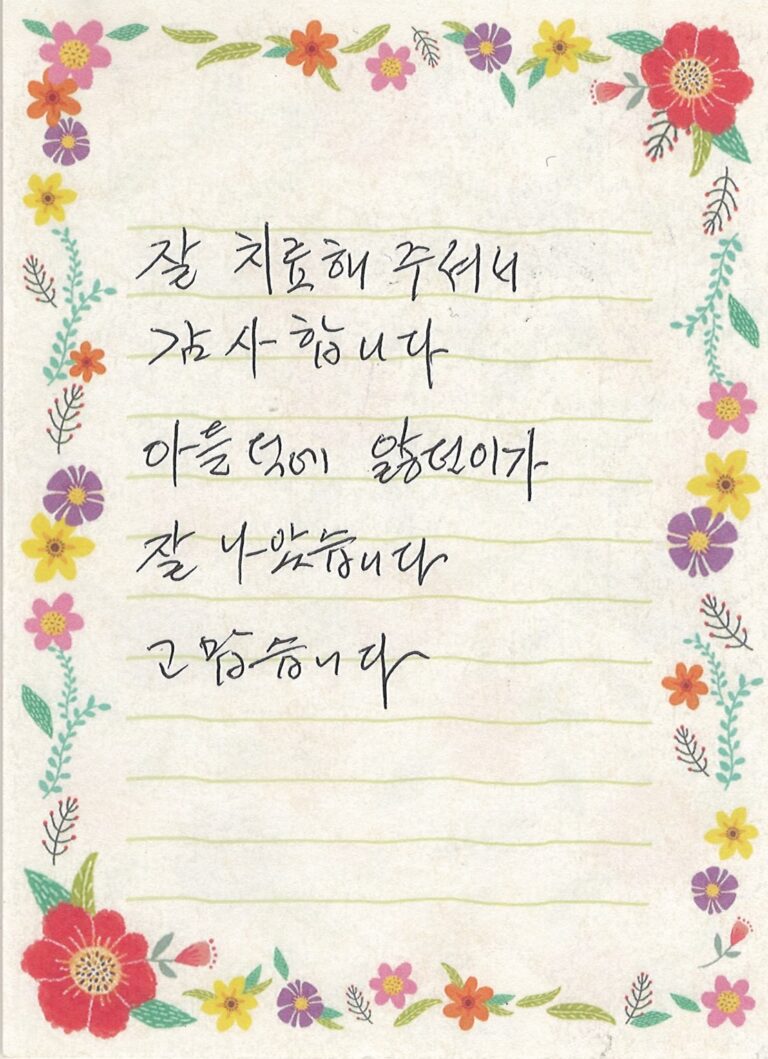 잘 치료해 주셔니
감사합니다
아들덕에 앓던이가
잘 나았습니다
고맙습니다